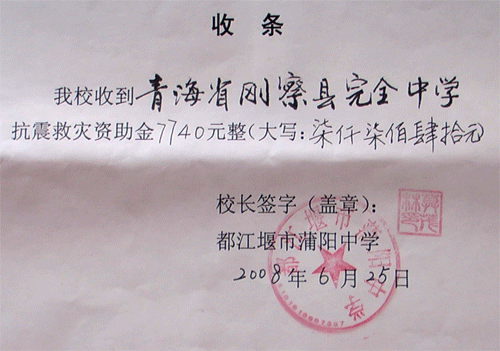 收条
我校收到青海省刚察县完全中学
抗震救灾资助金7740元整(大写:柒仟柒佰肆拾元)
校长签字(盖章):
都江堰市蒲阳中学
2008年6月25日
都江堰市蒲阳中学